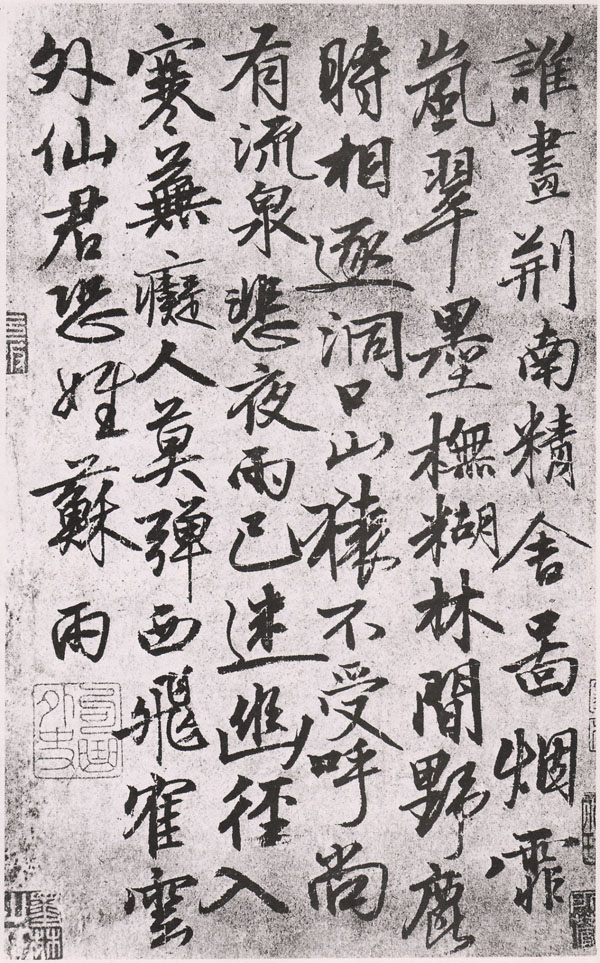 誰畫荆南精舍啚烟霏
嵐翠墨橅糊林間野鹿
時相逐洞口山猿不受呼尚
有流泉悲夜雨已迷幽徑入
寒蕪癡人莫彈西飛隺雲
外仙君恐姓蘇 雨
句曲外史